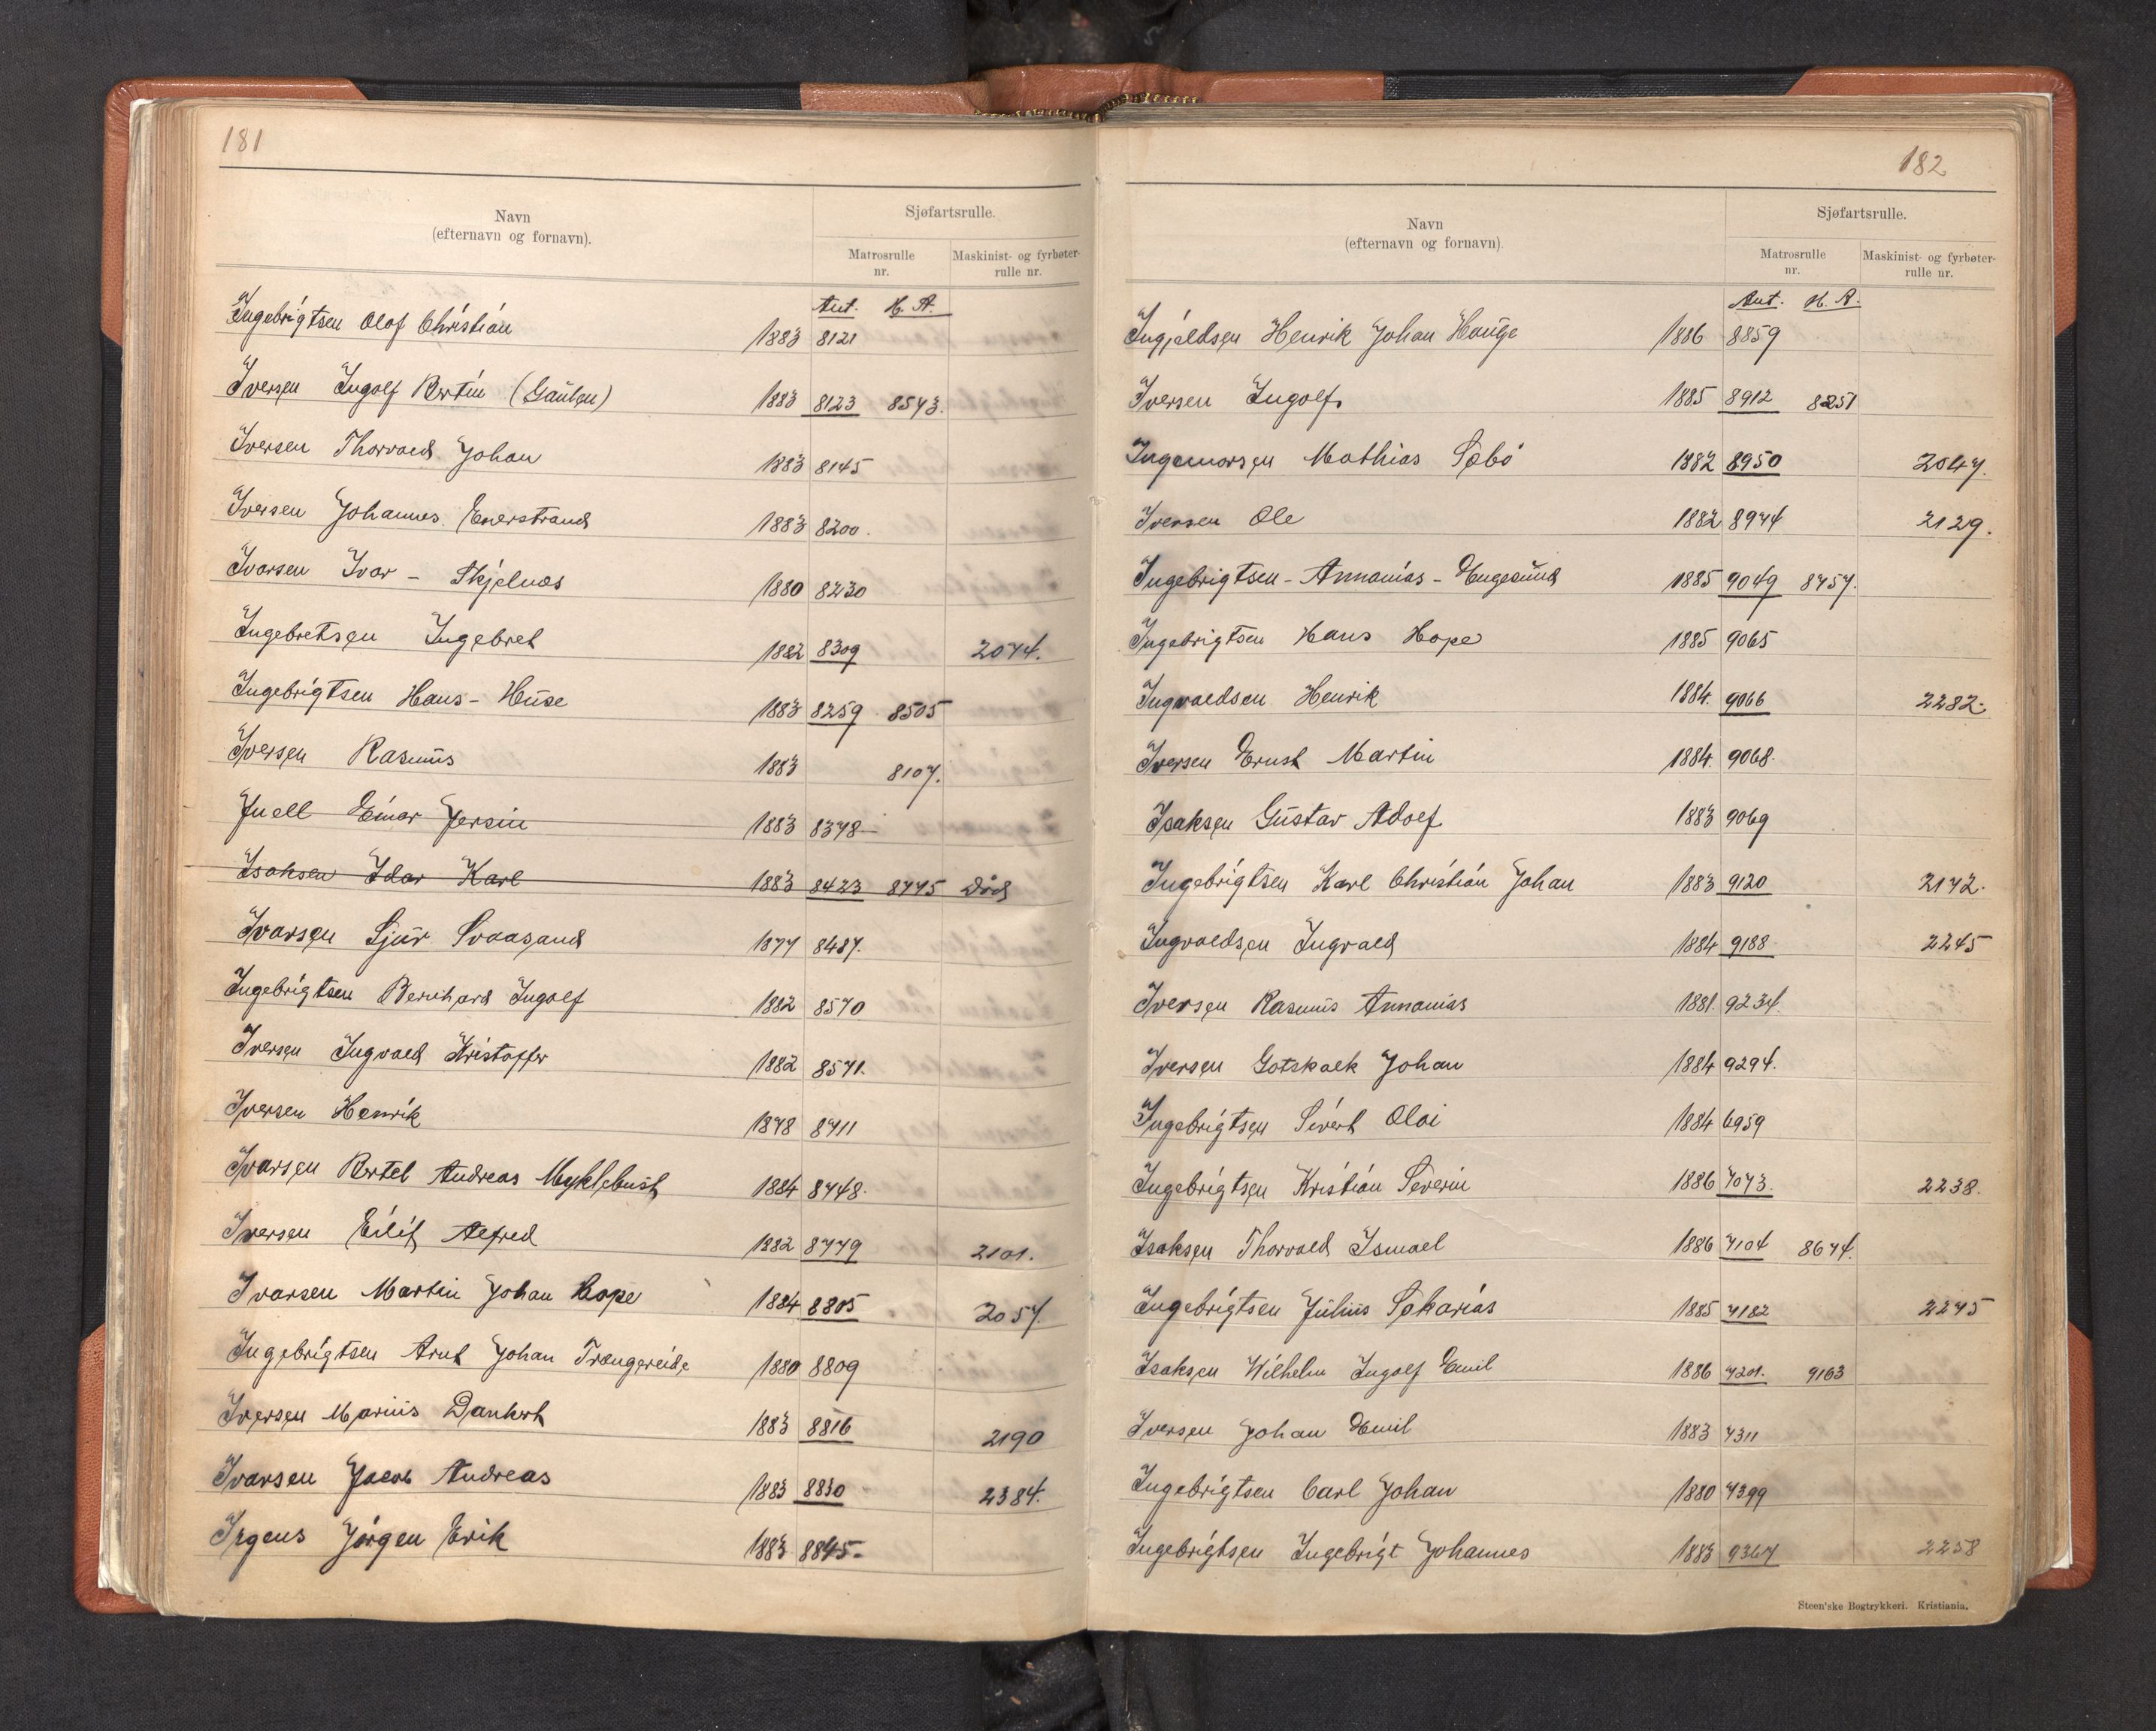 181
Navn
(efternavn og fornavn).
Sjøfartsrulle.
Matrosrulle
nr.
Maskinist- og fyrbøter-
rulle nr.
Ant. H. A.
Ingebrigtsen Olaf Christian 1883 8121
Iversen Ingolf Bertin (Gaulen) 1883 8123 8543.
Iversen Thorvald Johan 1883 8145
Iversen Johannes Enerstrand 1883 8200.
Ivarsen Ivar - Skjelnæs 1880 8230
Ingebretsen Ingebret 1882 8309 2074.
Ingebrigtsen Hans - Huse 1883 8259 8505
Iversen Rasmus 1883 8107.
Juell Einar Jersin 1883 8378
Isaksen Idar Karl 1883 8423 8775 Död
Ivarsen Sjur Svaasand 1877 8487.
Ingebrigtsen Bernhard Ingolf 1882 8570
Iversen Ingvald Kristoffer 1882 8571.
Iversen Henrik 1878 8711
Ivarsen Bertel Andreas Myklebust 1884 8748.
Iversen Eilif Alfred 1882 8779 2101.
Ivarsen Martin Johan Hope 1884 8805 2057.
Ingebrigtsen Arnt Johan Trængereide 1880 8809
Iversen Marius Dankert 1883 8816 2190
Ivarsen Jacob Andreas 1883 8830 2384.
Irgens Jörgen Erik 1883 8845.
182
Navn
(efternavn og fornavn).
Sjøfartsrulle.
Matrosrulle
nr.
Maskinist- og fyrbøter-
rulle nr.
Ant. H. A.
Ingjældsen Henrik Johan Hauge 1886 8859
Iversen Ingolf 1885 8912 8251
Ingemorsen Mathias Sæbö 1882 8950 2047.
Iversen Ole 1882 8974 2129.
Ingebrigtsen - Annanias - Engesund 1885 9049 8757.
Ingebrigtsen Hans Hope 1885 9065
Ingvaldsen Henrik 1884. 9066 2282.
Iversen Ernst Martin 1884. 9068.
Isaksen Gustav Adolf 1883 9069
Ingebrigtsen Karl Christian Johan 1883 9120 2172.
Ingvaldsen Ingvald 1884 9188 2245
Iversen Rasmus Annanias 1881. 9234.
Iversen Gotskalk Johan 1884 9294.
Ingebrigtsen Sivert Olai 1884 6959
Ingebrigtsen Kristian Severin 1886 7073. 2238.
Isaksen Thorvald Ismael 1886 7104 8674.
Ingebrigtsen Julius Sakarias 1885 7182 2275
Isaksen Wilhelm Ingolf Emil 1886 7201. 9163
Iversen Johan Emil 1883 7311
Ingebrigtsen Carl Johan 1880 7399
Ingebrigtsen Ingebrigt Johannes 1883 9367 2258
Steen'ske Bogtrykkeri. Kristiania.